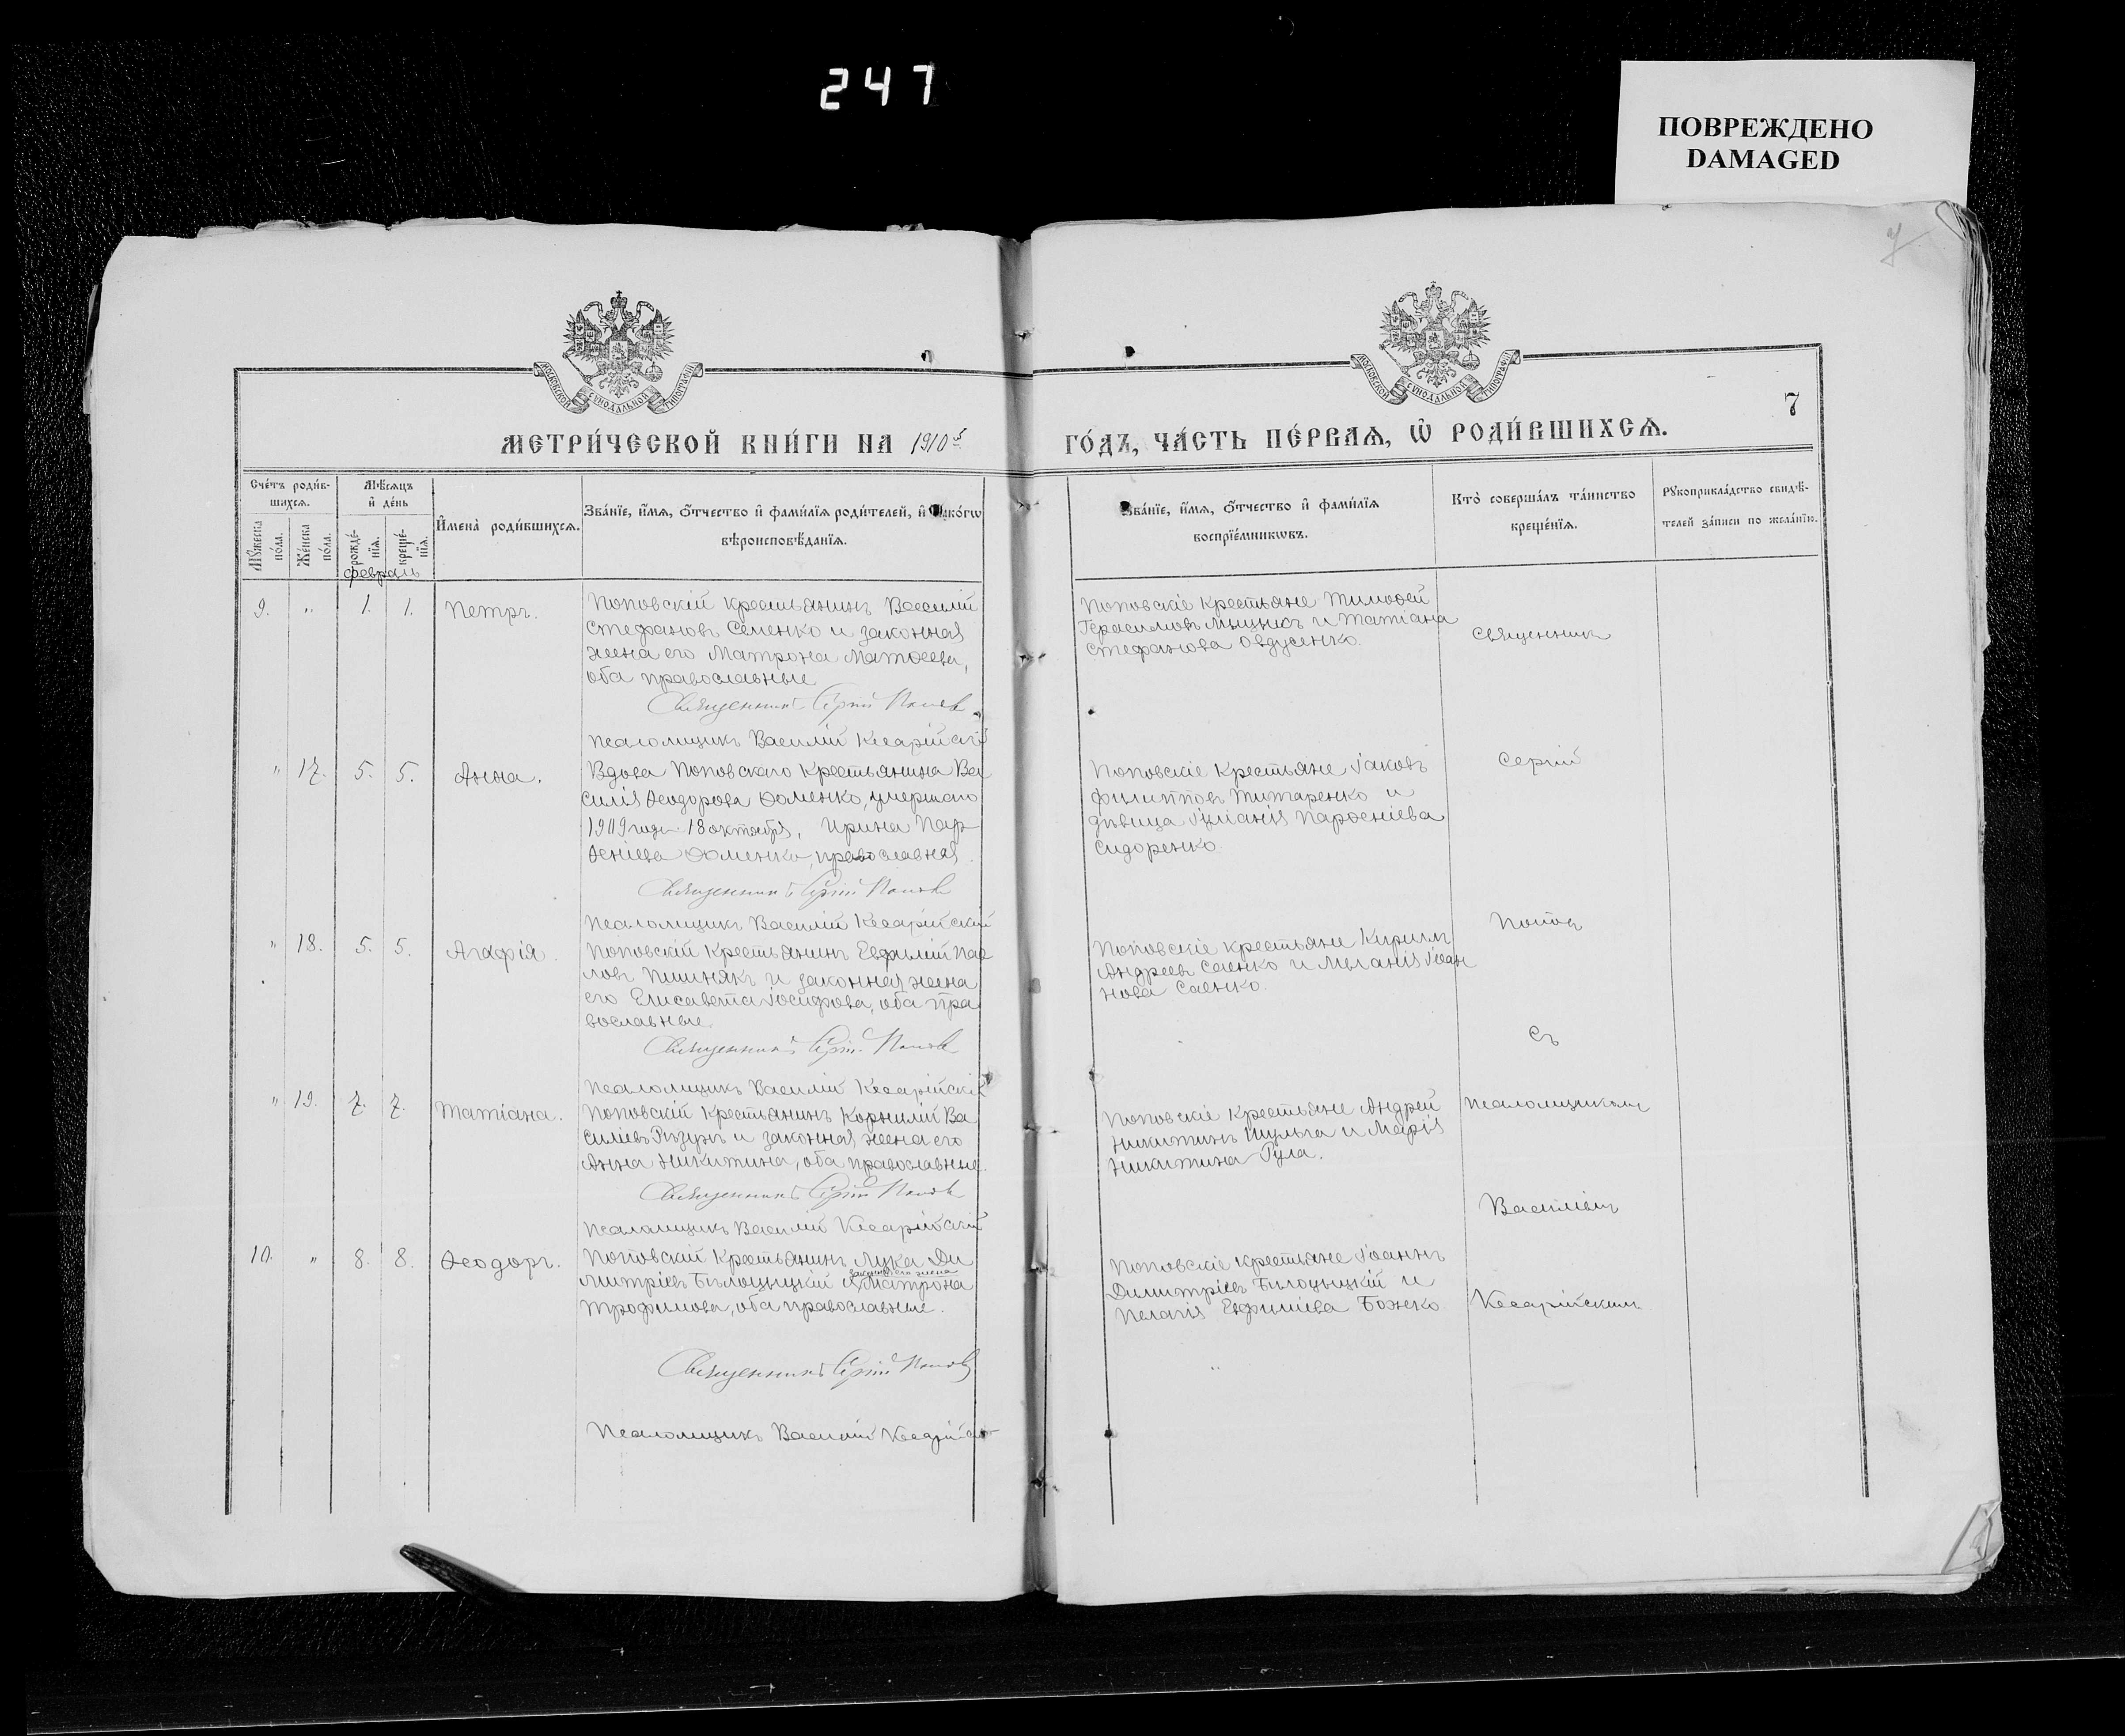 247
ПОВРЕЖДЕНО
DAMAGED
7
МОСКОВСКОЙ СѴНОДАЛЬНОЙ ТИПОГРАФІИ
МОСКОВСКОЙ СѴНОДАЛЬНОЙ ТИПОГРАФІИ
7
МЕТРИ́ЧЕСКОЙ КНИ́ГИ НА 1910й ГО́ДЪ, ЧА́СТЬ ПЕ́РВАѦ, Ѡ҆ РОДИ́ВШИХСѦ.
Сче́тъ роди́в-
шихсѧ.
Мꙋ́жеска
по́ла.
Же́нска
по́ла.
Мѣ́сѧцъ
и҆ де́нь
рожде́-
нїѧ.
креще́-
нїѧ.
Февраль
И҆мена̀ роди́вшихсѧ.
Зва́нїе, и҆́мѧ, ѻ҆́тчество и҆ фамѝлїѧ роди́телей, и҆ како́гѡ
вѣроисповѣ́данїѧ.
Зва́нїе, и҆́мѧ, ѻ҆́тчество и҆ фамѝлїѧ
воспрїе́мникѡвъ.
Кто̀ соверша́лъ та́инство
креще́нїѧ.
Рꙋкоприкла́дство свидѣ́-
телей за́писи по жела́нїю.
9. " 1. 1. Петръ.
Поповскій крестьянинъ Василій
Стефановъ Семенко и законная
жена его Матрона Матѳеева,
оба православные
Священникъ Сергій Поповъ
Псаломщикъ Василій Кесарійскій
Поповскіе крестьяне Тимоѳей
Герасимовъ и Татіана
Стефанова Овдусенко.
Священникъ
" 17. 5. 5. Анна.
Вдова Поповскаго крестьянина Ва
силія Ѳеодорова Ѳоменко, умершаго
1909 года 18 октября, Ирина Пар-
ѳеніева Ѳоменко, православная.
Священникъ Сергій Поповъ
Псаломщикъ Василій Кесарійскій
Поповскіе крестьяне Іаковъ
Филипповъ Титаренко и
дѣвица Іуліанія Парѳеніева
Сидоренко.
Сергій
" 18. 5. 5. Агафія.
Поповскій крестьянинъ Евфимій Пав
ловъ Пшинякъ и законная жена
его Елисавета Іосифова, оба пра
вославные
Священникъ Сергій Поповъ
Псаломщикъ Василій Кесарійскій
Поповскіе крестьяне Кириллъ
Андреевъ Саенко и Меланія Іоан
нова Саенко.
Поповъ
съ
" 19. 7. 7. Татіана.
Поповскій крестьянинъ Корнилій Ва
силіевъ Рѣзунъ и законная жена его
Анна Никитина, оба православные.
Священникъ Сергій Поповъ
Псаломщикъ Василій Кесарійскій
Поповскіе крестьяне Андрей
Никитинъ Шульга и Марія
Никитина Гула.
псаломщикомъ
Василіемъ
10. " 8. 8. Ѳеодоръ.
Поповскій крестьянинъ Лука Ди
митріевъ Бѣлоцыцкій и законная его жена Матрона
Трофимова, оба православные.
Священникъ Сергій Поповъ
Псаломщикъ Василій Кесарійскій
Поповскіе крестьяне Іоаннъ
Димитріевъ Билоцыцкій и
Пелагія Евфиміева Божко
Кесарійскимъ